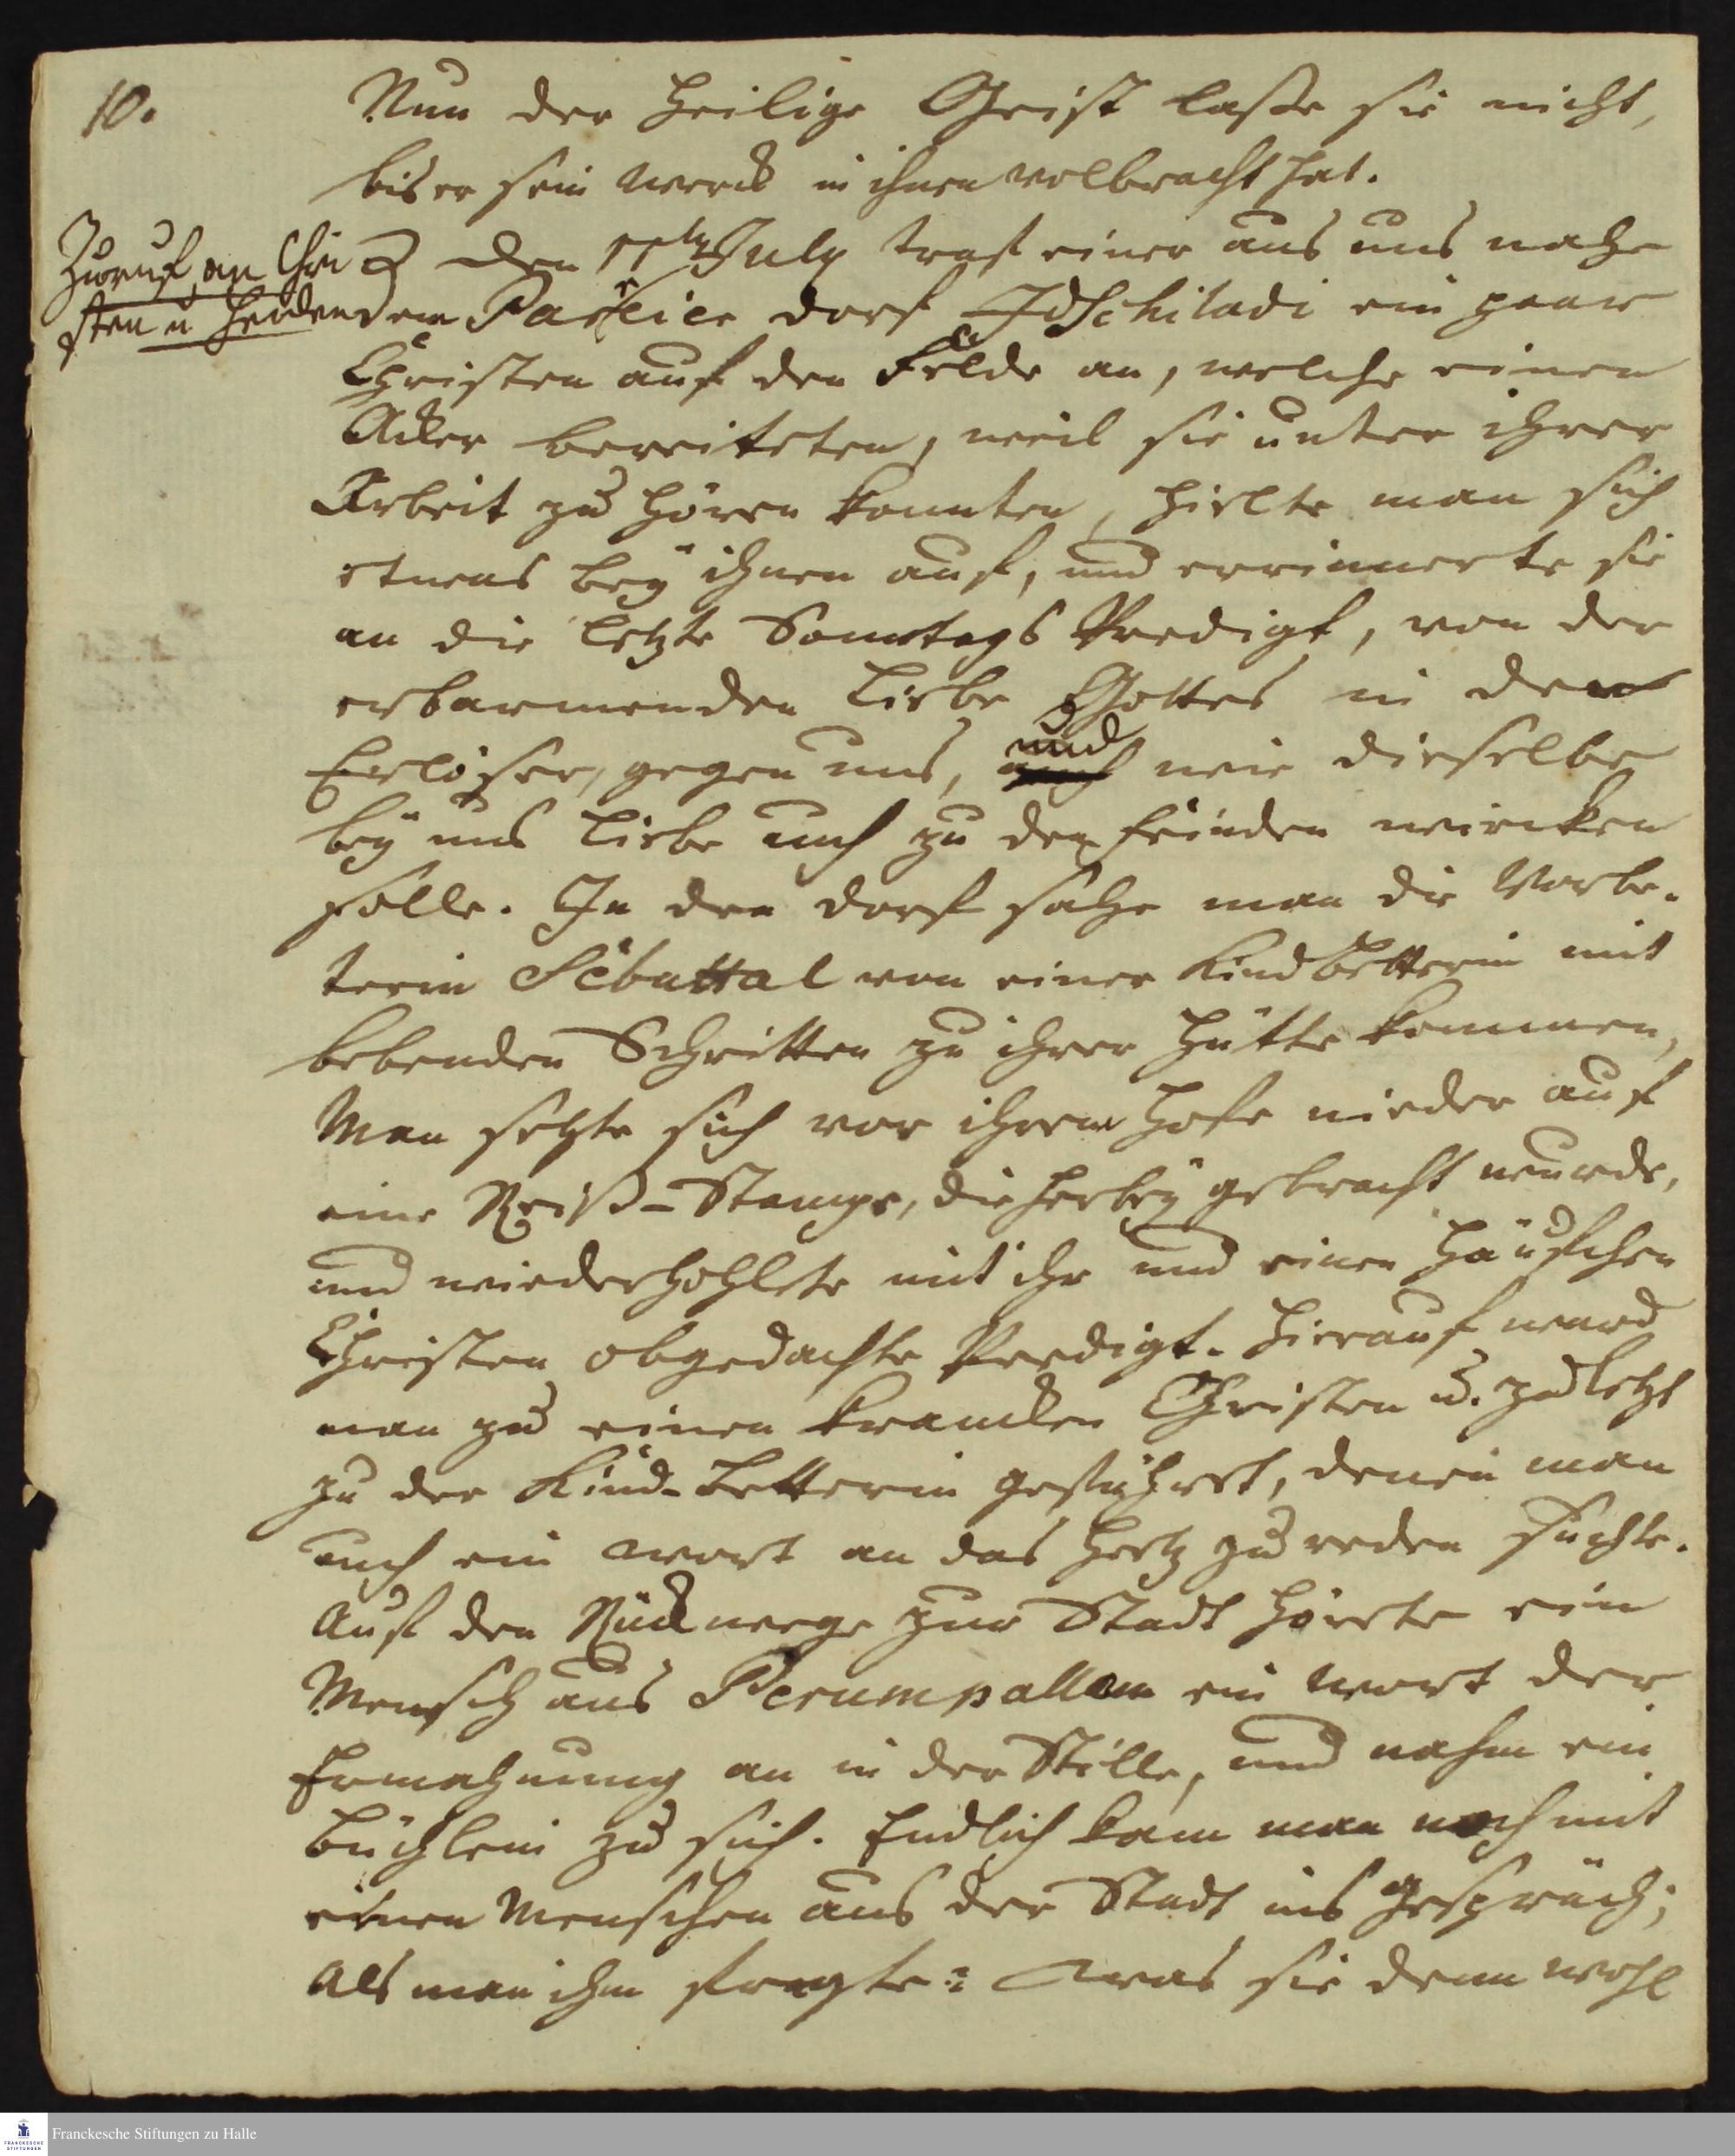 10.
Nun der Heilige Geist laße sie nicht,
bis er sein Werck in ihnen vollbracht hat.
Zuruf an Chri
sten u Heiden
den 11ten July traf einer aus uns nahe
dem Pareier dorf Idschiladi ein paar
Christen auf den Felde an, welche einen
Acker bereiteten, weil sie unter ihrer
Arbeit zu hören konnten, hielte man sich
etwas bey ihnen auf, und errinnerte sie
an die letzte Sonntags Predigt, von der
erbarmenden Liebe Gottes in dem
Erlöser, gegen uns, und wie dieselbe
bey uns Liebe auch zu den feinden wircken
solle. In den dorf sahe man die Vorbe-
terin Sebattal von einer Kindbetterin mit
bebenden Schritten zu ihrer Hütte kommen,
Man setzte sich vor ihrem Hofe nieder auf
eine Reiß-Stampe, die herbey gebracht wurde,
und wiederhohlte mit ihr und einen Häufchen
Christen obgedachte Predigt. Hierauf ward
man zu einen krancken Christen u. zu letzt
zu der Kind-Betterin geführet, denen man
auch ein Wort an das Hertz zu reden suchte.
Auf den Rückwege zur Stadt hörte ein
Mensch aus Perumpallam ein Wort der
Ermahnung an in der Stille, und nahm ein
Büchlein zu sich. Endlich kam man noch mit
einen Menschen aus der Stadt ins Gespräch;
Als man ihm fragte: Was sie denn wohl
Franckesche Stiftungen zu Halle